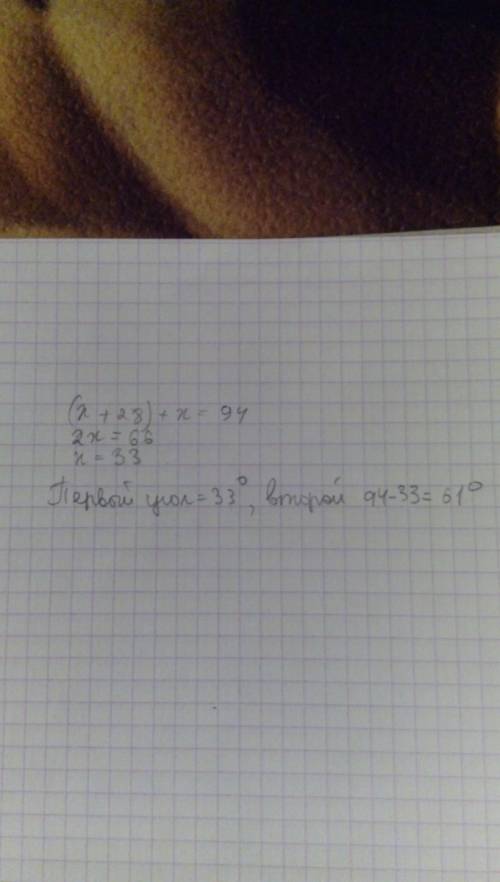 (x + 28) + x = 94
2x = 66
x = 33
Первый угол = 33°, второй 94-33 = 61°